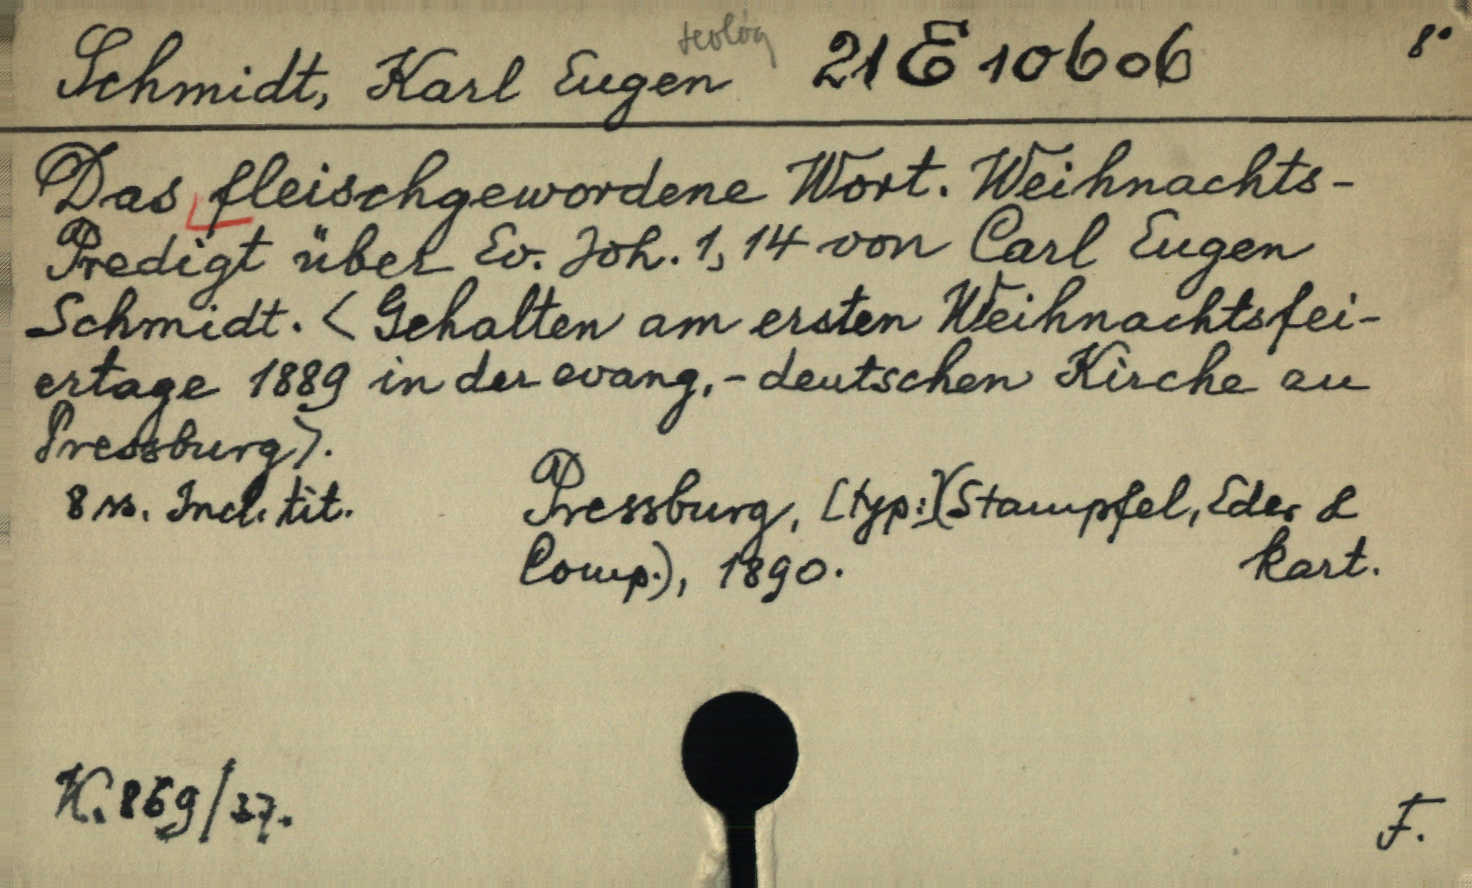 teológ
Schmidt, Karl Eugen 21 E 10606 8°
Das fleischgewordene Wort. Weihnachts-
Predigt über Ev. Joh. 1, 14 von Carl Eugen
Schmidt. < Gehalten am ersten Weihnachtsfei-
ertage 1889 in der evang.-deutschen Kirche zu
Pressburg>.
8 ss. Incl. tit. Pressburg, [typ:] (Stampfel, Eder &
Comp.), 1890. kart.
K. 869/37. F.